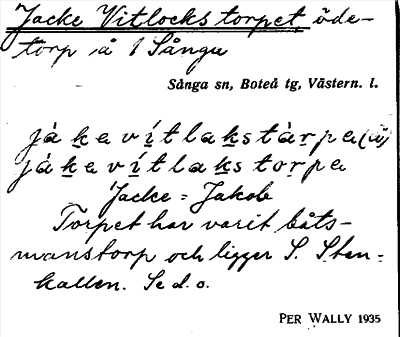 Jacke Vitlocks torpet, öde-
torp å 1 Sånga
Sånga sn, Boteå tg, Västern. l.
jákevítlakstàrpa(å)
jákevítlakstorpe
Jacke = Jakob
Torpet har varit båts-
manstorp och ligger S. Sten-
kallen. Se d. o.
PER WALLY 1935